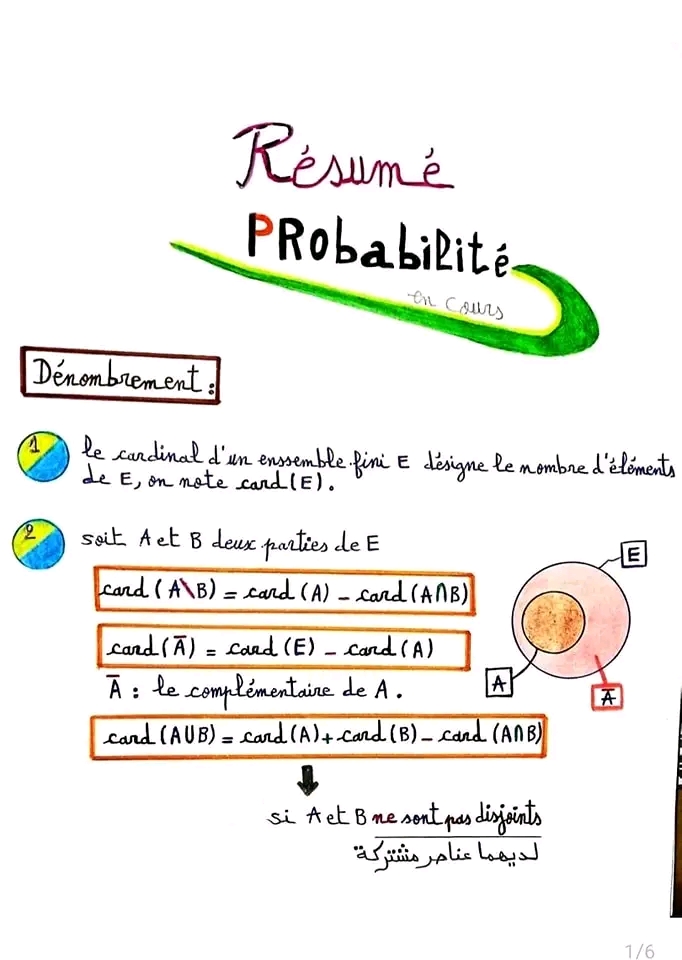 Résumé
PRobabilité
en cours
Dénombrement :
1 le cardinal d'un enssemble fini E désigne le nombre d'éléments
de E, on note card(E).
2 soit A et B deux parties de E
card (A\B) = card (A) - card (A∩B)
card (Ā) = card (E) - card (A)
Ā : le complémentaire de A.
card (A∪B) = card (A) + card (B) - card (A∩B)
E
A
Ā
si A et B ne sont pas disjoints
لديهما عناصر مشتركة
1/6